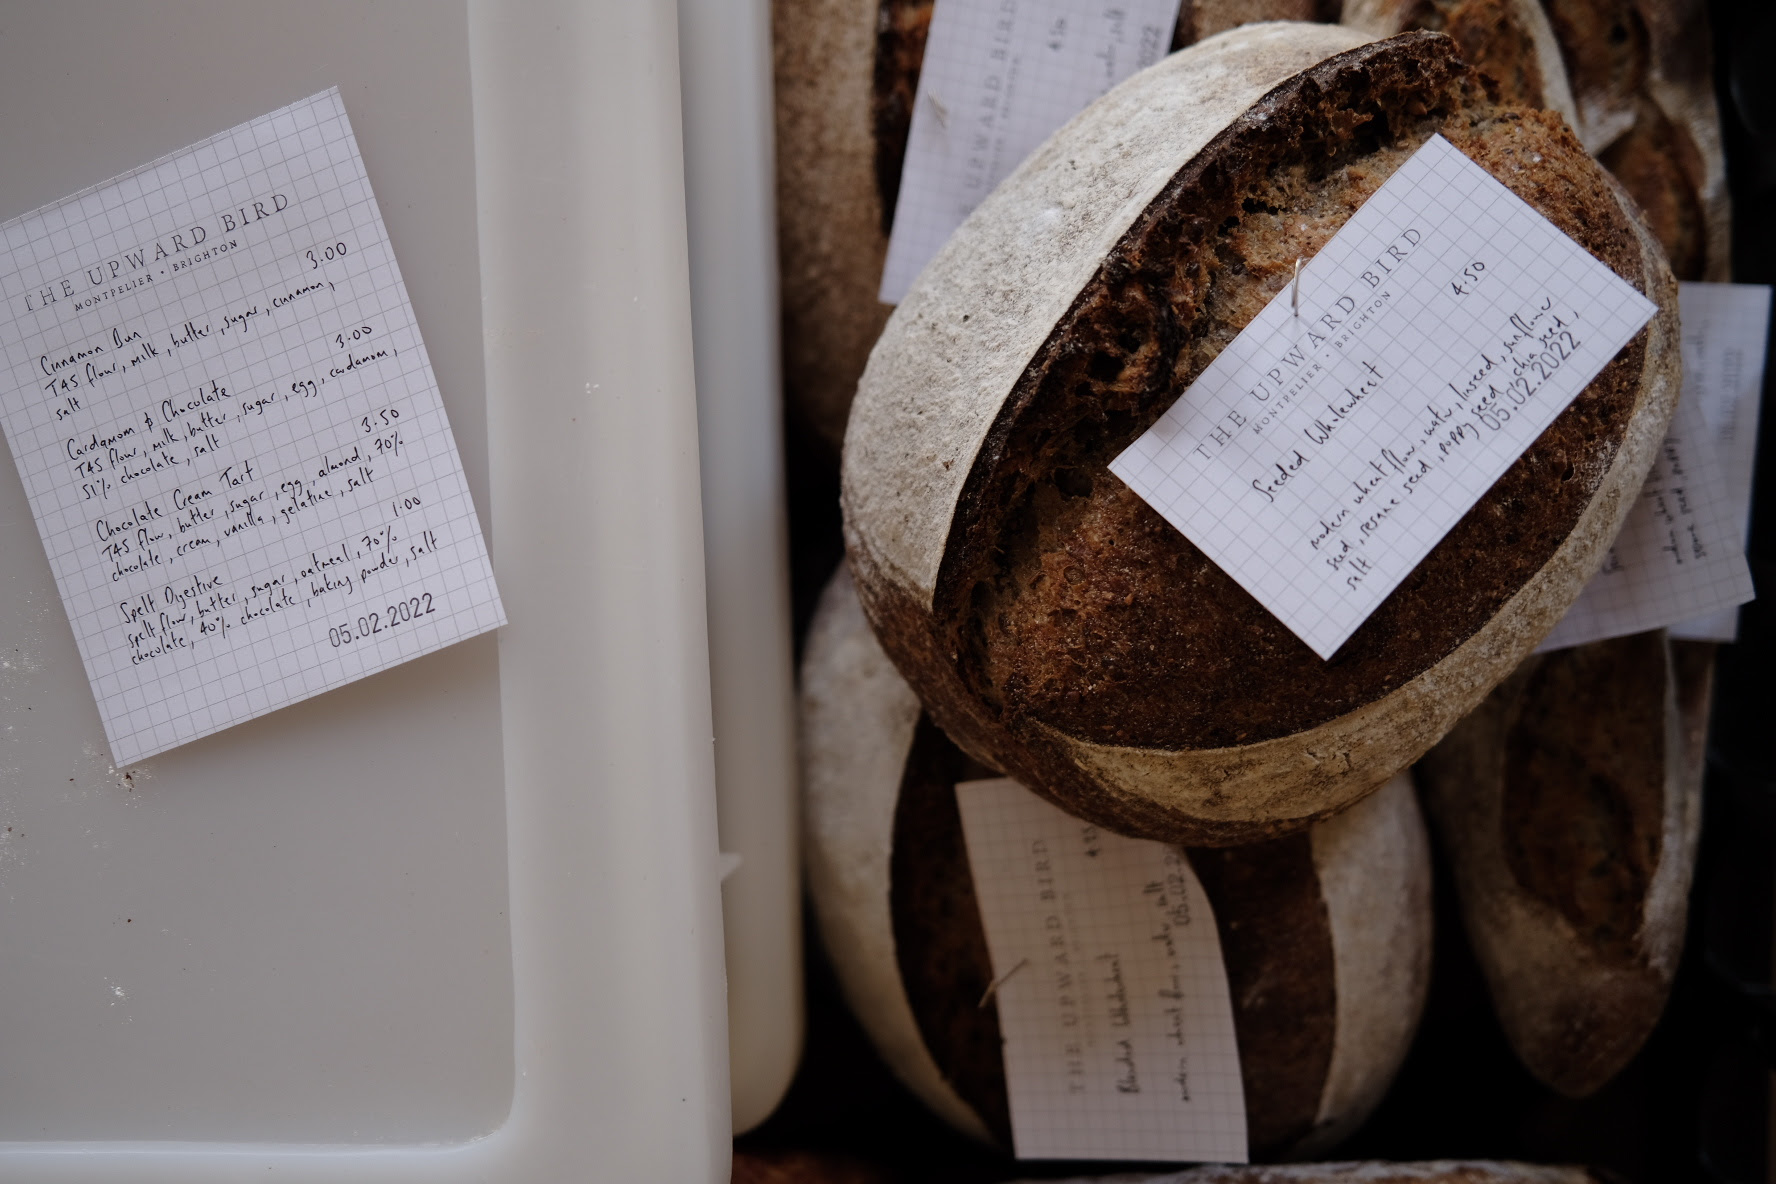 THE UPWARD BIRD
MONTPELIER • BRIGHTON
Cinnamon Bun 3.00
T45 flour, milk, butter, sugar, cinnamon,
salt
Cardamom & Chocolate 3.00
T45 flour, milk, butter, sugar, egg, cardamom,
51% chocolate, salt
Chocolate Cream Tart 3.50
T45 flour, butter, sugar, egg, almond, 70%
chocolate, cream, vanilla, gelatine, salt
Spelt Digestive 1.00
spelt flour, butter, sugar, oatmeal, 70%
chocolate, 40% chocolate, baking powder, salt
05.02.2022
UPWARD BIRD
4.50
water, salt
2022
THE UPWARD BIRD
MONTPELIER • BRIGHTON
4.50
Seeded Wholewheat
modern wheat flour, water, linseed, sunflower
seed, sesame seed, poppy seed, chia seed,
salt
05.02.2022
THE UPWARD BIRD
Blended Wholewheat
modern wheat flour, water, salt
05.02.2